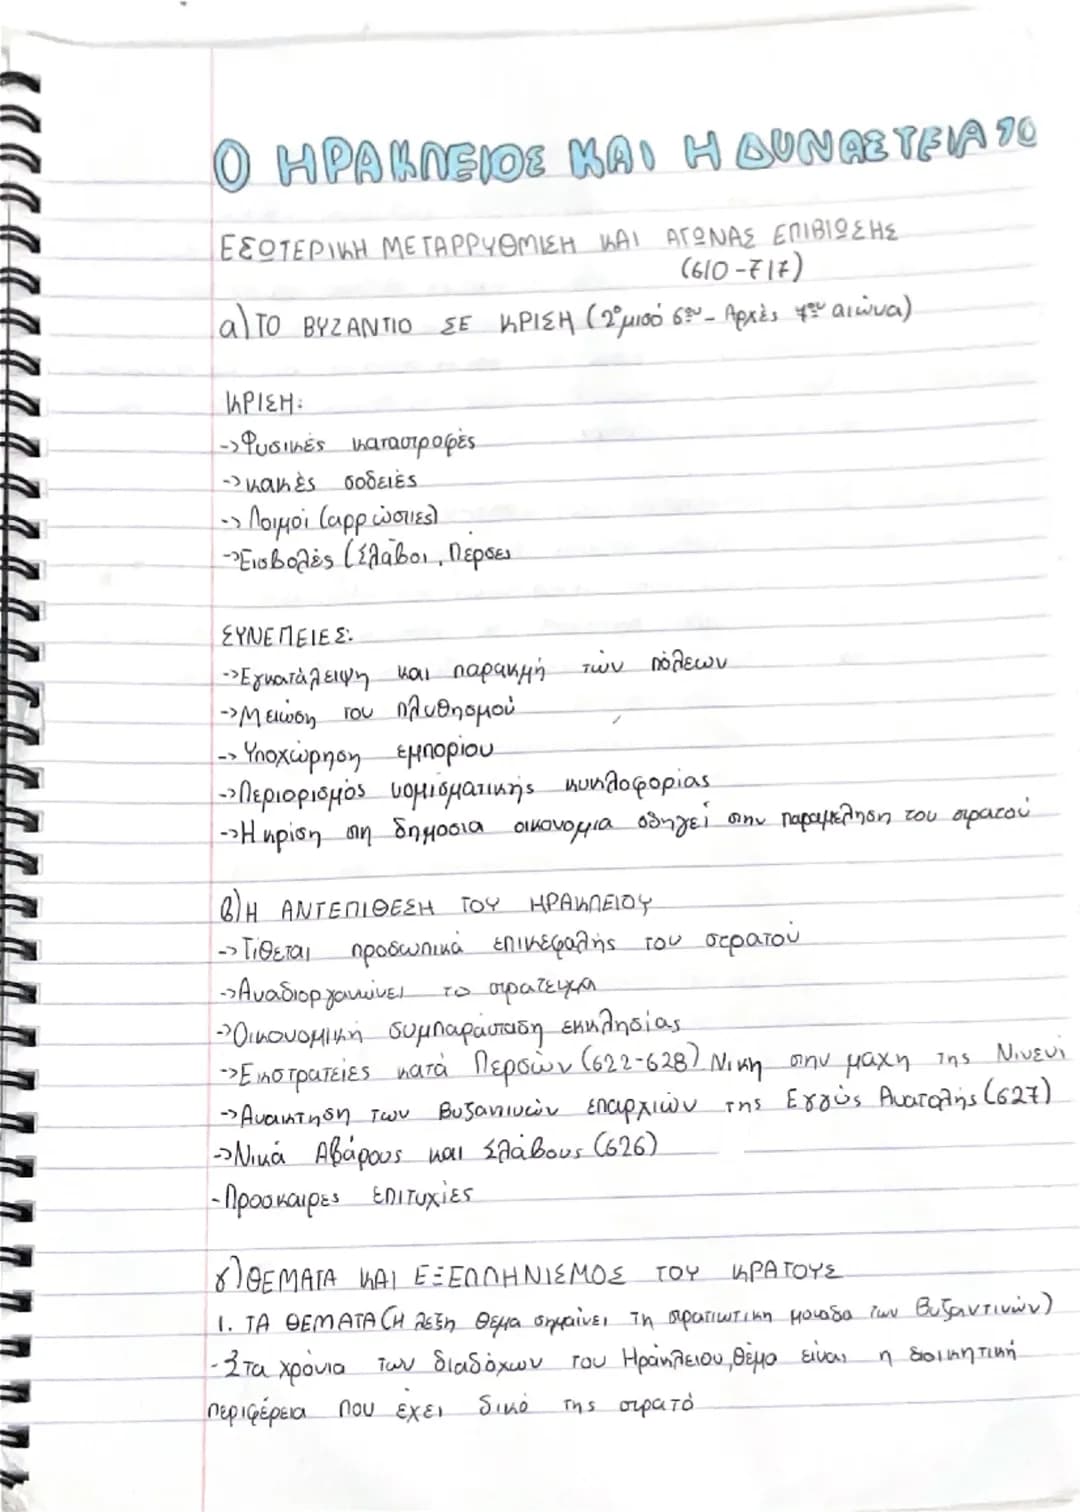 Ο ΗΡΑΚΛΕΙΟΣ ΚΑΙ Η ΔΥΝΑΣΤΕΙΑ ΤΟ
ΕΣΩΤΕΡΙΚΗ ΜΕΤΑΡΡΥΘΜΙΣΗ ΚΑΙ ΑΓΩΝΑΣ ΕΠΙΒΙΩΣΗΣ
(610-717)
α) ΤΟ ΒΥΖΑΝΤΙΟ ΣΕ ΚΡΙΣΗ (2ο μισό 6ου - Αρχές 7ου αιώνα)
ΚΡΙΣΗ:
->Φυσικές καταστροφές
->κακές σοδειές
-> Λοιμοί (αρρώστιες)
->Εισβολές (Σλάβοι, Πέρσες
ΣΥΝΕΠΕΙΕΣ:
->Εγκατάλειψη και παρακμή των πόλεων
->Μείωση του πλυθησμού
-> Υποχώρηση εμπορίου
->Περιορισμός νομισματικής κυκλοφορίας
->Η κρίση στη δημοσια οικονομια οδηγεί στην παραμεληση του στρατού
β) Η ΑΝΤΕΠΙΘΕΣΗ ΤΟΥ ΗΡΑΚΛΕΙΟΥ
-> Τίθεται προσωπικά επικεφαλής του στρατού
->Αναδιοργανώνει το στρατευμα
->Οικονομική συμπαράσταση εκκλησίας
->Εκστρατείες κατά Περσών (622-628) Νικη στην μαχη της Νινευι
->Ανακτηση των Βυζαντινών επαρχιών της Εγγύς Ανατολής (627)
->Νικά Αβάρους και Σλάβους (626)
-Προσκαιρες επιτυχίες
γ) ΘΕΜΑΤΑ ΚΑΙ ΕΞΕΛΛΗΝΙΣΜΟΣ ΤΟΥ ΚΡΑΤΟΥΣ
1. ΤΑ ΘΕΜΑΤΑ (Η λεξη θεμα σημαίνει τη στρατιωτικη μοναδα των Βυζαντινών)
-Στα χρόνια των διαδόχων του Ηράκλειου, θέμα είναι η διοικητική
περιφέρεια που έχει δικό της στρατό